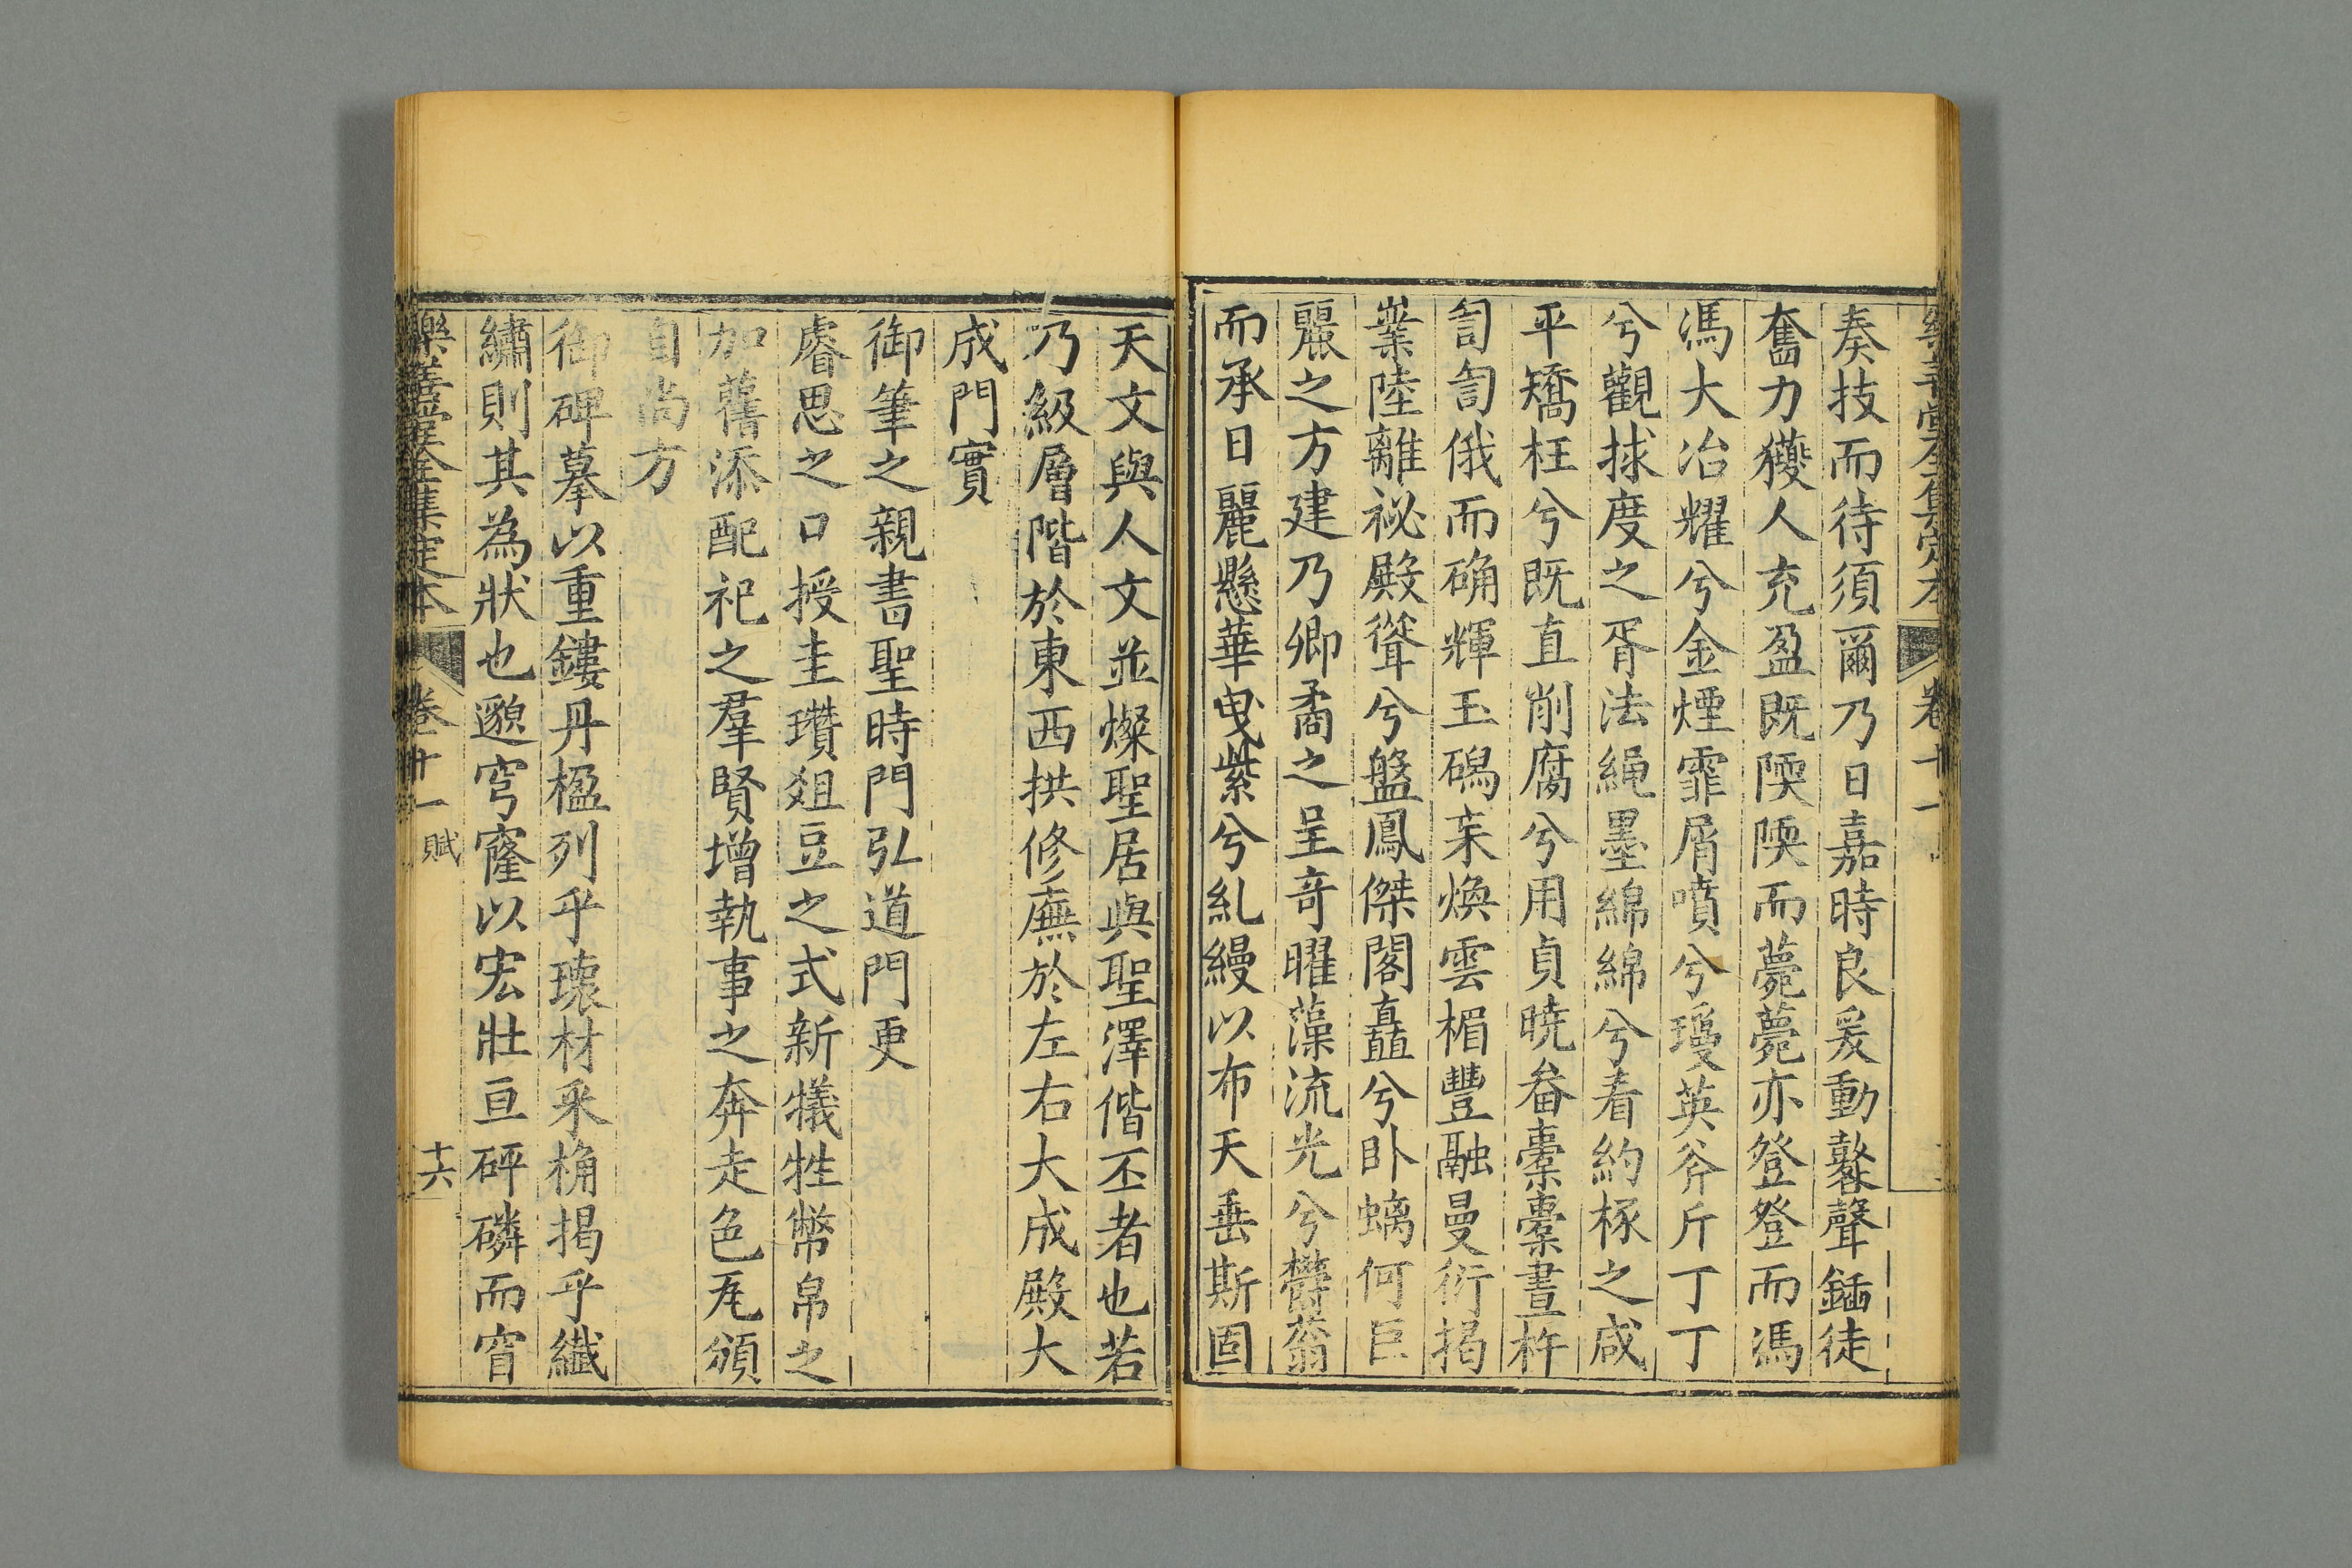 樂善堂全集定本 卷十一
奏技而待須爾乃日嘉時良爰動鼛聲鍤徒
奮力獿人充盈既陾陾而薨薨亦登登而馮
馮大冶燿兮金煙霏屑噴兮瓊英斧斤丁丁
兮觀捄度之胥法繩墨綿綿兮看約椓之咸
平矯枉兮既直削腐兮用貞曉畚橐橐晝杵
訇訇俄而确輝玉磶䆲煥雲楣豐融曼衍揭
業陸離祕殿聳兮盤鳳傑閣矗兮卧螭何巨
麗之方建乃卿矞之呈奇曜藻流光兮欝蓊
而承日麗懸華曳紫兮糺縵以布天垂斯固
天文與人文並燦聖居與聖澤偕丕者也若
乃級層階於東西拱修廡於左右大成殿大
成門實
御筆之親書聖時門弘道門更
睿思之口授圭瓚俎豆之式新犠牲幣帛之
加舊添配祀之羣賢增執事之奔走色旄頒
自尚方
御碑摹以重鏤丹楹列乎瓌材采桷揭乎纖
繡則其為狀也邈穹窿以宏壯亘砰磷而窅
樂善堂全集定本 卷十一 賦 十六